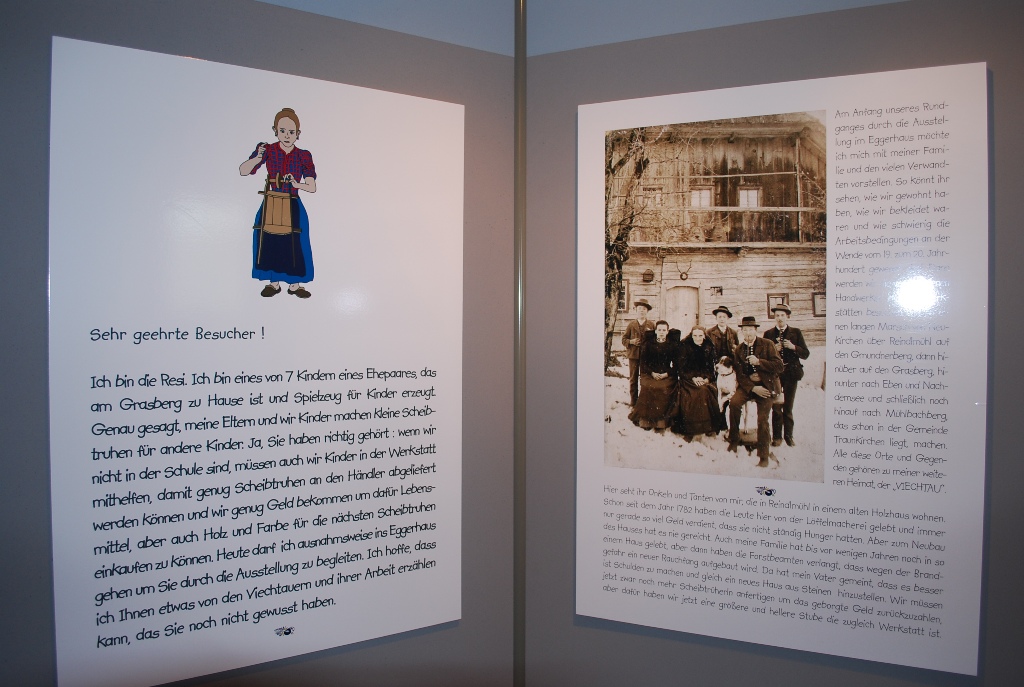 Sehr geehrte Besucher !
Ich bin die Resi. Ich bin eines von 7 Kindern eines Ehepaares, das
am Grasberg zu Hause ist und Spielzeug für Kinder erzeugt.
Genau gesagt, meine Eltern und wir Kinder machen kleine Scheib-
truhen für andere Kinder. Ja, Sie haben richtig gehört : wenn wir
nicht in der Schule sind, müssen auch wir Kinder in der Werkstatt
mithelfen, damit genug Scheibtruhen an den Händler abgeliefert
werden können und wir genug Geld bekommen um dafür Lebens-
mittel, aber auch Holz und Farbe für die nächsten Scheibtruhen
einkaufen zu können. Heute darf ich ausnahmsweise ins Eggerhaus
gehen um Sie durch die Ausstellung zu begleiten. Ich hoffe, dass
ich Ihnen etwas von den Viechtauern und ihrer Arbeit erzählen
kann, das Sie noch nicht gewusst haben.
Am Anfang unseres Rund-
ganges durch die Ausstel-
lung im Eggerhaus möchte
ich mich mit meiner Fami-
lie und den vielen Verwand-
ten vorstellen. So könnt ihr
sehen, wie wir gewohnt ha-
ben, wie wir bekleidet wa-
ren und wie schwierig die
Arbeitsbedingungen an der
Wende vom 19. zum 20. Jahr-
hundert
werden
Handwerk
stätten
nen langen
kirchen über Reindlmühl auf
den Gmundnerberg, dann hi-
nüber auf den Grasberg, hi-
nunter nach Eben und Nach-
demsee und schließlich noch
hinauf nach Mühlbachberg,
das schon in der Gemeinde
Traunkirchen liegt, machen.
Alle diese Orte und Gegen-
den gehören zu meiner weite-
ren Heimat, der „VIECHTAU".
Hier seht ihr Onkeln und Tanten von mir, die in Reindlmühl in einem alten Holzhaus wohnen.
Schon seit dem Jahr 1782 haben die Leute hier von der Löffelmacherei gelebt und immer
nur gerade so viel Geld verdient, dass sie nicht ständig Hunger hatten. Aber zum Neubau
des Hauses hat es nie gereicht. Auch meine Familie hat bis vor wenigen Jahren noch in so
einem Haus gelebt, aber dann haben die Forstbeamten verlangt, dass wegen der Brand-
gefahr ein neuer Rauchfang aufgebaut wird. Da hat mein Vater gemeint, dass es besser
ist Schulden zu machen und gleich ein neues Haus aus Steinen hinzustellen. Wir müssen
jetzt zwar noch mehr Scheibtruherln anfertigen um das geborgte Geld zurückzuzahlen,
aber dafür haben wir jetzt eine größere und hellere Stube die zugleich Werkstatt ist.